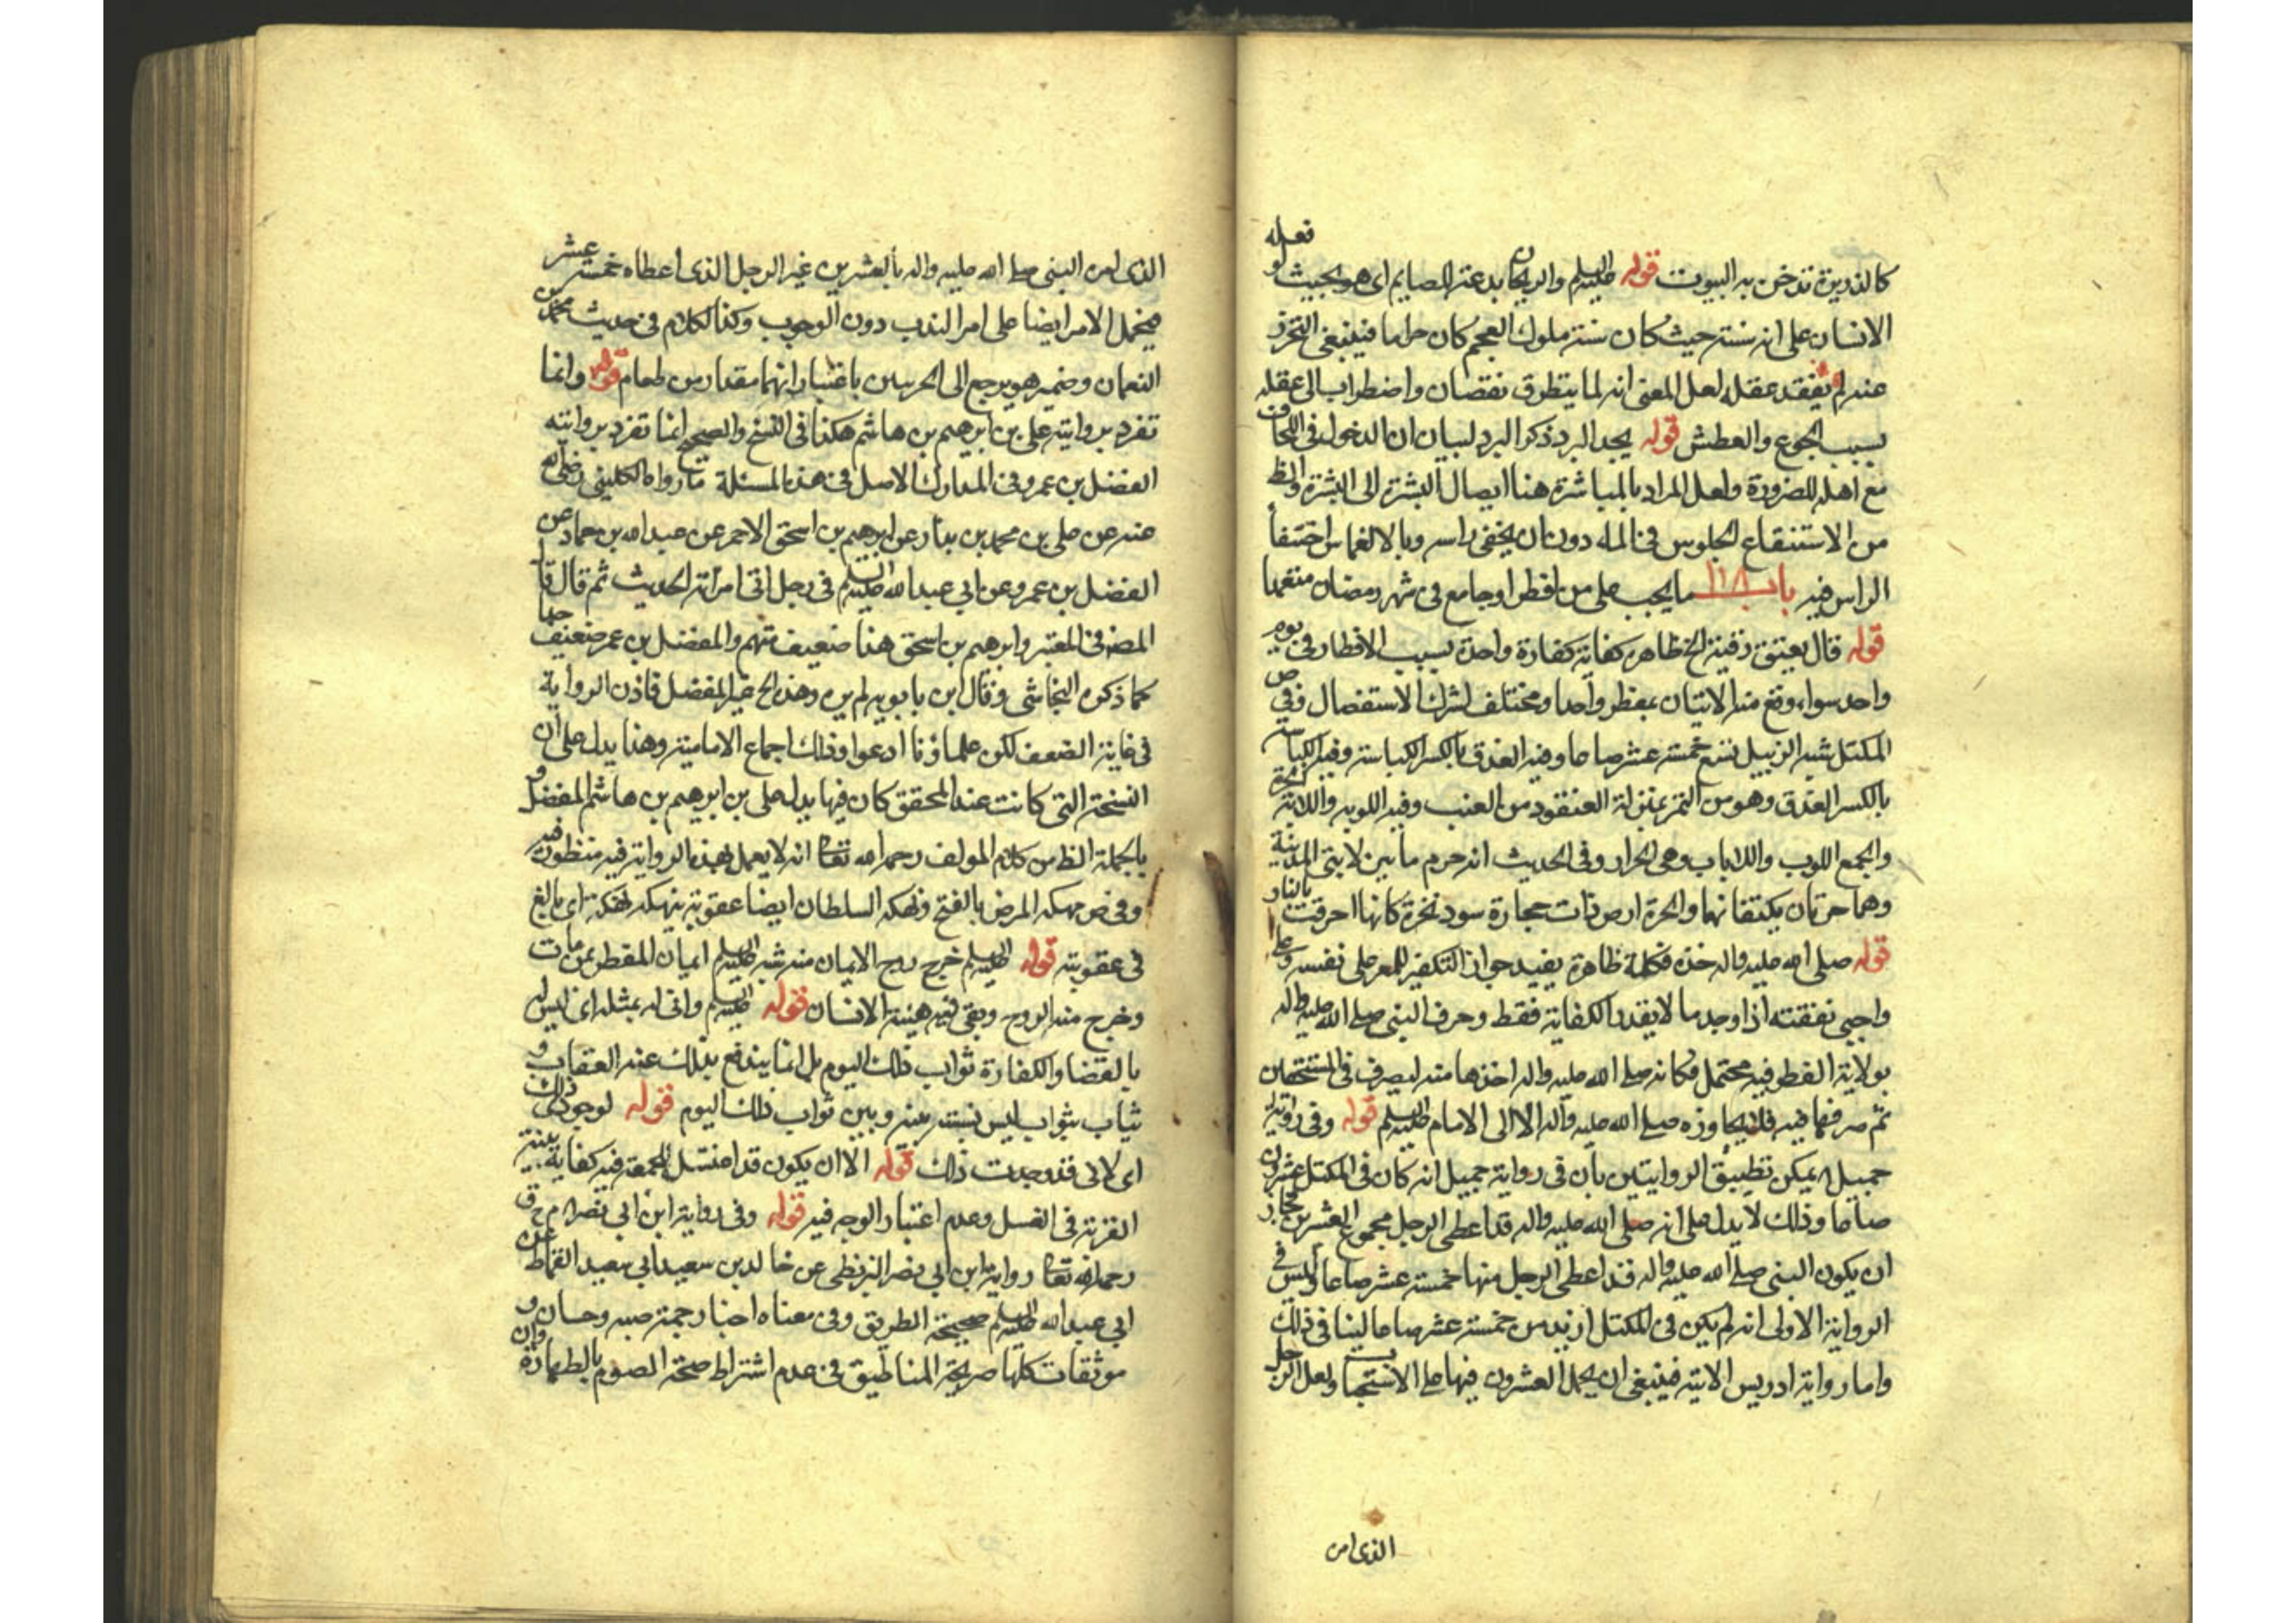 كالذريرة تدخن به البيوت قوله عليه السلم والريحان بدعة للصايم اى هو بحيث لو فعله
الانسان على انه سنة حيث كان سنة ملوك العجم كان حراما فينبغى التحرز
عنه لم يفقد عقله لعل المعنى انه لما يتطرق نقصان واضطراب الى عقله
بسبب الجوع والعطش قوله يجد البرد ذكر البرد لبيان ان الدخول فى اللحاف
مع اهله للضرورة ولعل المراد بالمباشرة هنا ايصال البشرة الى البشرة والظ
من الاستنقاع الجلوس فى الماء دون ان يخفى راسه وبالانغماس اختفأ
الراس فيه باب ما يجب على من افطر او جامع فى شهر رمضان متعمدا
قوله قال يعتق رقبة الخ ظاهره كفاية كفارة واحدة بسبب الافطار فى يوم
واحد سواء وقع منه الاتيان بمفطر واحد او مختلف لترك الاستفصال وفى ص
المكتل شبه الزبيل تسع خمسة عشر صاعا وفيه العذق بالكسر الكباسة وفيه الكباسة
بالكسر العذق وهو من التمر بمنزلة العنقود من العنب وفيه اللوبه واللابة الحرة
والجمع اللوب واللاباب وهى الحرار وفى الحديث انه حرم ما بين لابتى المدينة
وهما حرتان يكتنفانها والحرة ارض ذات حجارة سود نخرة كانها احرقت بالنار
قوله صلى الله عليه واله خذه فكله ظاهره يفيد جواز التكفير للمعسر على نفسه وعلى
واجبى نفقته اذا وجد ما لا يقدر الكفاية فقط وحرف النبى صلى الله عليه واله
بولاية الفطر فيه محتمل فكانه صلى الله عليه واله اخذها منه ليصرف فى المستحقين
ثم صرفها فيه فلا يجاوزه صلى الله عليه وآله الا الى الامام عليه السلم قوله وفى رواية
جميل اه يمكن تطبيق الروايتين بان فى رواية جميل انه كان فى المكتل عشرون
صاعا وذلك لا يدل على انه صلى الله عليه واله قد اعطى الرجل مجموع العشرين فجاز
ان يكون النبى صلى الله عليه واله قد اعطى الرجل منها خمسة عشر صاعا وليس فى
الرواية الاولى انه لم يكن فى المكتل ازيد من خمسة عشر صاعا لينافى ذلك
واما رواية ادريس الاتية فينبغى ان يحمل العشرون فيها على الاستحباب ولعل الرجل
الذى امر
الذى امره النبى صلى الله عليه واله بالعشرين غير الرجل الذى اعطاه خمسة عشر
فيحمل الامر ايضا على امر الندب دون الوجوب وكذا الكلام فى حديث محمد بن
النعمان وضمير هو يرجع الى الجريبين باعتبار انهما مقدار من طعام قوله وانما
تفرد بروايته على بن ابرهيم بن هاشم هكذا فى النسخ والصحيح انما تفرد بروايته
الفضل بن عمر وفى المدارك الاصل فى هذه المسئلة ما رواه الكلينى رضى الله
عنه عن على بن محمد بن بندار عن ابرهيم بن اسحق الاحمر عن عبد الله بن حماد عن
الفضل بن عمر وعن ابى عبد الله عليه السلم فى رجل اتى امرأته الحديث ثم قال قا
المصنف فى المعتبر وابرهيم بن اسحق هذا ضعيف متهم والمفضل بن عمر ضعيف جدا
كما ذكره النجاشى وقال ابن بابويه لم يرو هذه الخ غير المفضل فاذن الرواية
فى غاية الضعف لكن علماؤنا ادعوا وذلك اجماع الامامية وهذا يدل على ان
النسخة التى كانت عند المحقق كان فيها بدل على بن ابرهيم بن هاشم المفضل و
بالجملة الظ من كلام المولف رحمه الله تعالى انه لا يعمل بهذه الرواية فيه منظور فيه
وفى ص نهكه المرض بالفتح ونهكه السلطان ايضا عقوبة ينهكه نهكة اى بالغ
فى عقوبته قوله عليه السلم خرج روح الايمان منه شبه عليه السلم ايمان المفطر بمن مات
وخرج منه الروح وبقى فيه هيئة الانسان قوله عليه السلم وانى له بمثله اى ليس له
بالقضا والكفارة ثواب ذلك اليوم بل انما يندفع بذلك عنه العقاب و
يثاب بثواب ليس نسبته بينه وبين ثواب ذلك اليوم قوله لوجودى ذلك
اى لانى قد وجدت ذلك قوله الا ان يكون قد اغتسل للجمعة فيه كفاية نية
القربة فى الغسل وعدم اعتبار الوجه فيه قوله وفى رواية ابن ابى نصر اه م ح ق
رحمه الله تعالى رواية ابن ابى نصر البزنطى عن خالد بن سعيد ابى سعيد القماط عن
ابى عبد الله عليه السلم صحيحة الطريق وفى معناه اخبار جمة صبه وحسان و
موثقات كلها صريحة المناطيق فى عدم اشتراط صحة الصوم بالطهارة وان